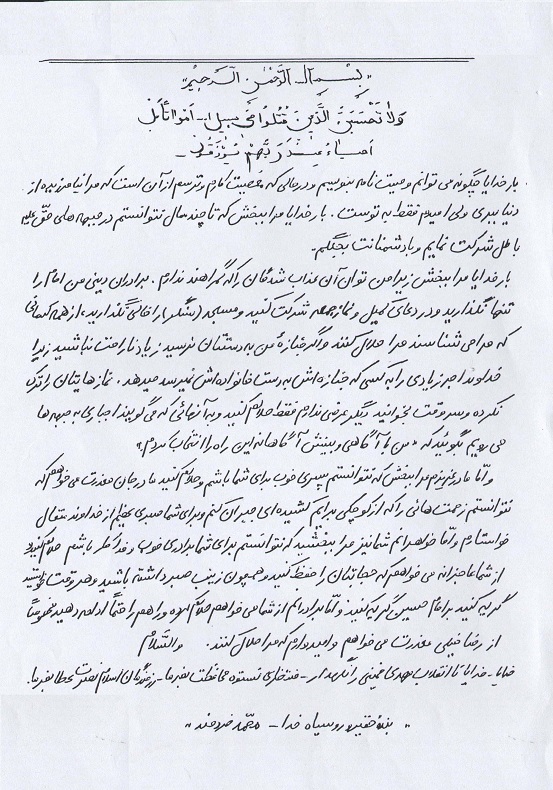 «بسم الله الرحمن الرحیم»
وَلا تَحْسَبَنَّ الَّذینَ قُتِلُوا فی سبیل الله امواتاً بَل
احیاءٌ عِنْدَ رَبِّهِمْ یُرْزَقُونَ
بارخدایا چگونه می توانم وصیت نامه بنویسم و درحالی که معصیت کارم و ترسم از آن است که مرا نیامرزیده از
دنیا ببری ولی امیدم فقط به توست. بارخدایا مرا ببخش که تا چند سال نتوانستم در جبهه های حق علیه
باطل شرکت نمایم و با دشمنانت بجنگم.
بارخدایا مرا ببخش زیرا من توان آن عذاب شدگان را که گمراهند ندارم. برادران دینی من امام را
تنها نگذارید و در دعای کمیل و نماز جمعه شرکت کنید و مساجد (سنگر) را خالی نگذارید. از همه کسانی
که مرا می شناسند مرا حلال کنند و اگر جنازهٔ من به دستتان نرسید زیاد ناراحت نباشید زیرا
خداوند اجر زیادی را به کسی که جنازه اش به دست خانواده اش نمیرسد میدهد. نمازهایتان را ترک
نکرده و سر وقت بخوانید دیگر عرضی ندارم فقط حلالم کنید و به آنهائی که می گویند اجباری به جبهه ها
می رویم بگوئید که «من با آگاهی و بینش آگاهانه این راه را انتخاب کردم»
و امّا مادر عزیزم مرا ببخش که نتوانستم پسری خوب برای شما باشم و حلالم کنید مادر جان معذرت می خواهم که
نتوانستم زحمت هائی را که از کوچکی برایم کشیده ای جبران کنم و برای شما صبری عظیم از خداوند متعال
خواستارم و امّا خواهرانم شما نیز مرا ببخشید که نتوانستم برای شما برادری خوب و فداکار باشم حلالم کنید و
از شما عاجزانه می خواهم که حجابتان را حفظ کنید و همچون زینب صبر داشته باشید و هر وقت خواستید
گریه کنید برای امام حسین گریه کنید و امّا برادرانم از شما می خواهم حلالم کرده و راهم را حتماً ادامه دهید مخصوصاً
از رضا خیلی معذرت می خواهم و امیدوارم که مرا حلال کنند. والسّلام
خدایا - خدایا تا انقلاب مهدی خمینی را نگهدار - منتظری نستوه محافظت بفرما - رزمندگان اسلام نصرت عطا بفرما.
«بندهٔ حقیر و روسیاه خدا - محمّد خردمند»